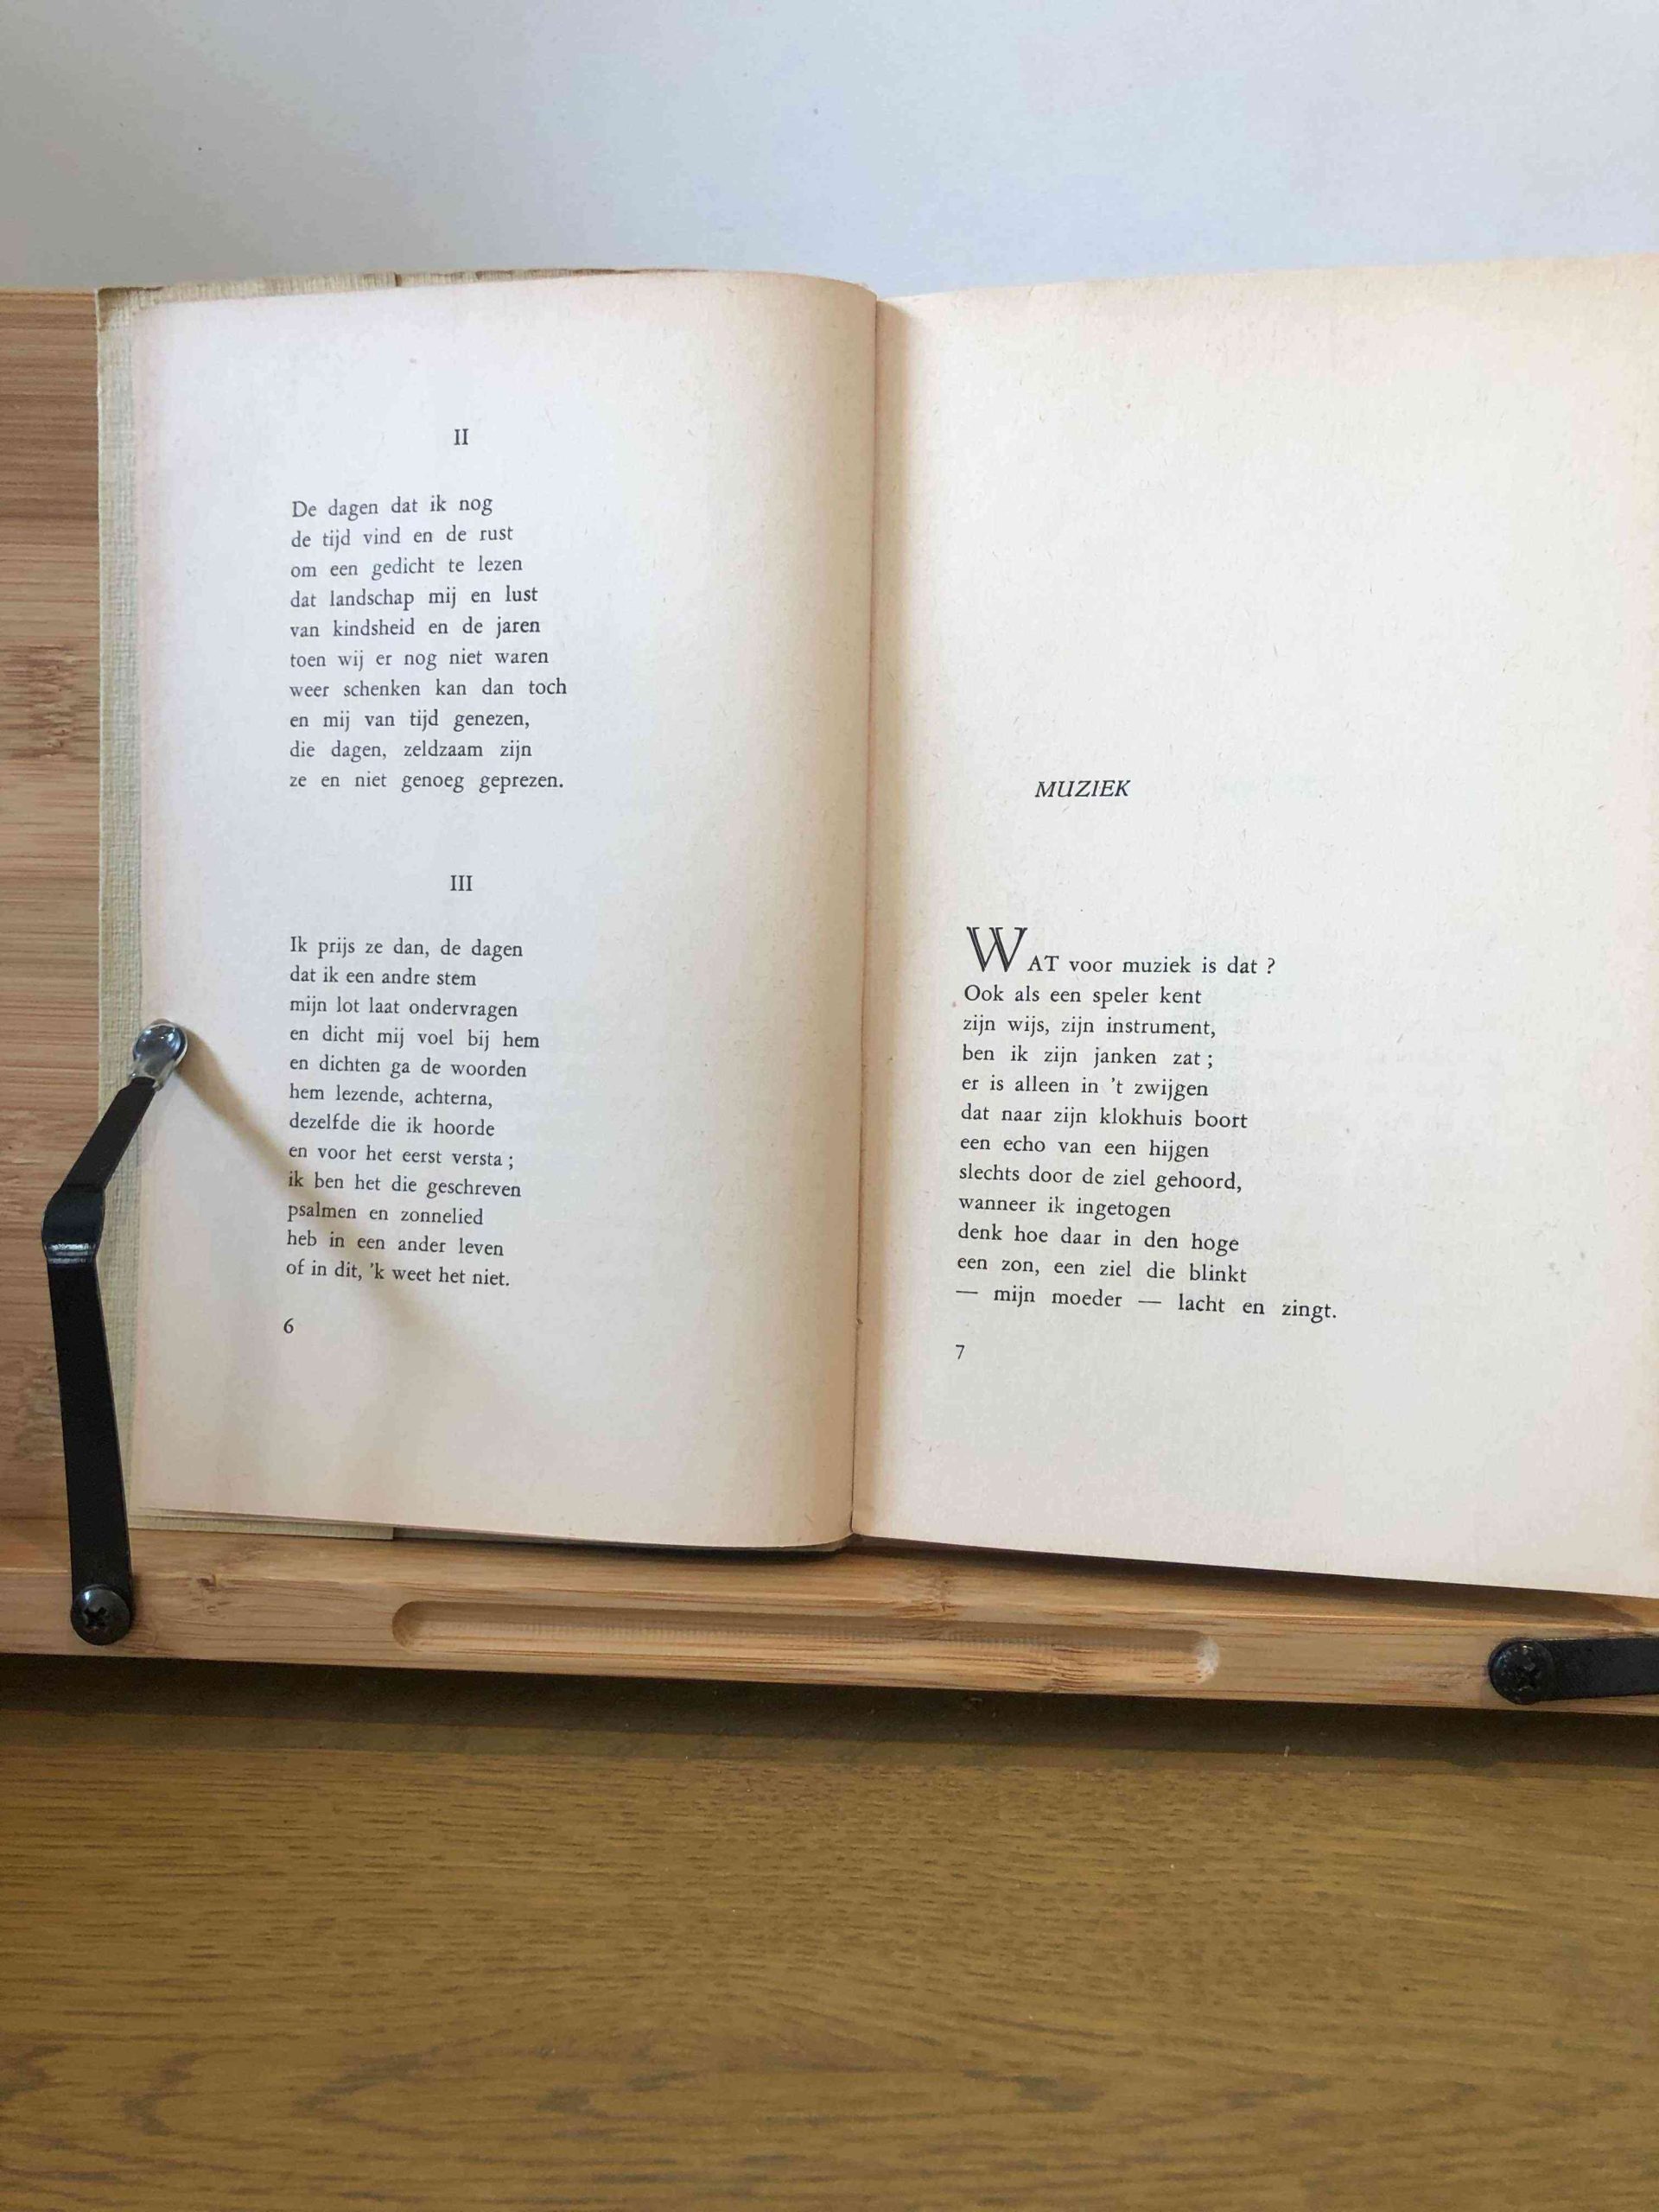 II
De dagen dat ik nog
de tijd vind en de rust
om een gedicht te lezen
dat landschap mij en lust
van kindsheid en de jaren
toen wij er nog niet waren
weer schenken kan dan toch
en mij van tijd genezen,
die dagen, zeldzaam zijn
ze en niet genoeg geprezen.
III
Ik prijs ze dan, de dagen
dat ik een andre stem
mijn lot laat ondervragen
en dicht mij voel bij hem
en dichten ga de woorden
hem lezende, achterna,
dezelfde die ik hoorde
en voor het eerst versta ;
ik ben het die geschreven
psalmen en zonnelied
heb in een ander leven
of in dit, 'k weet het niet.
6
MUZIEK
WAT voor muziek is dat ?
Ook als een speler kent
zijn wijs, zijn instrument,
ben ik zijn janken zat ;
er is alleen in 't zwijgen
dat naar zijn klokhuis boort
een echo van een hijgen
slechts door de ziel gehoord,
wanneer ik ingetogen
denk hoe daar in den hoge
een zon, een ziel die blinkt
— mijn moeder — lacht en zingt.
7